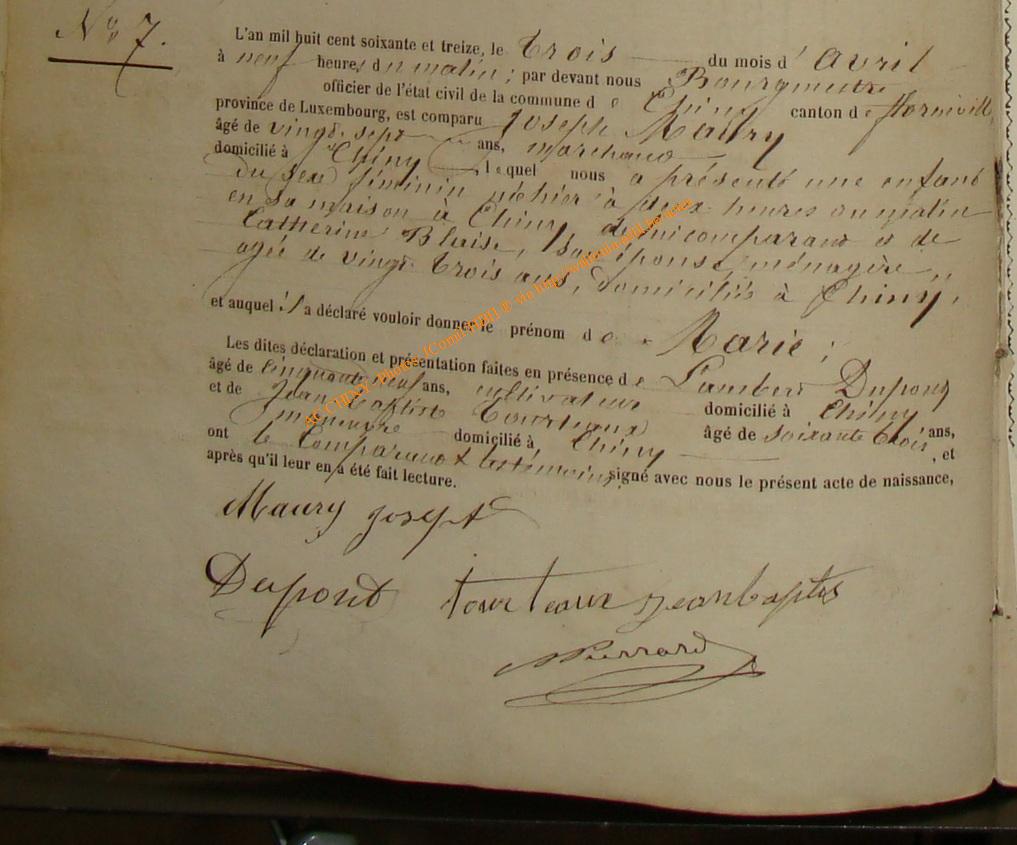 No 7.
L'an mil huit cent soixante et treize, le trois du mois d'avril
à neuf heures du matin ; par devant nous Bourgmestre
officier de l'état civil de la commune de Chiny canton de florenville
province de Luxembourg, est comparu Joseph Maury
âgé de vingt sept ans, marchand
domicilié à Chiny, lequel nous a présenté une enfant
du sexe féminin née hier à deux heures du matin
en sa maison à Chiny, de lui comparant et de
Catherine Blaise, son épouse, ménagère,
agée de vingt trois ans, domiciliés à Chiny,
et auquel il a déclaré vouloir donner le prénom de Marie ;
Les dites déclaration et présentation faites en présence de Lambert Dupont
âgé de cinquante neuf ans, cultivateur domicilié à Chiny
et de Jean Baptiste Tourteaux âgé de soixante trois ans,
domicilié à Chiny, et
ont le Comparant & les témoins signé avec nous le présent acte de naissance,
après qu'il leur en a été fait lecture.
Maury Joseph
Dupont tourteaux jeanbaptis
Pierrard